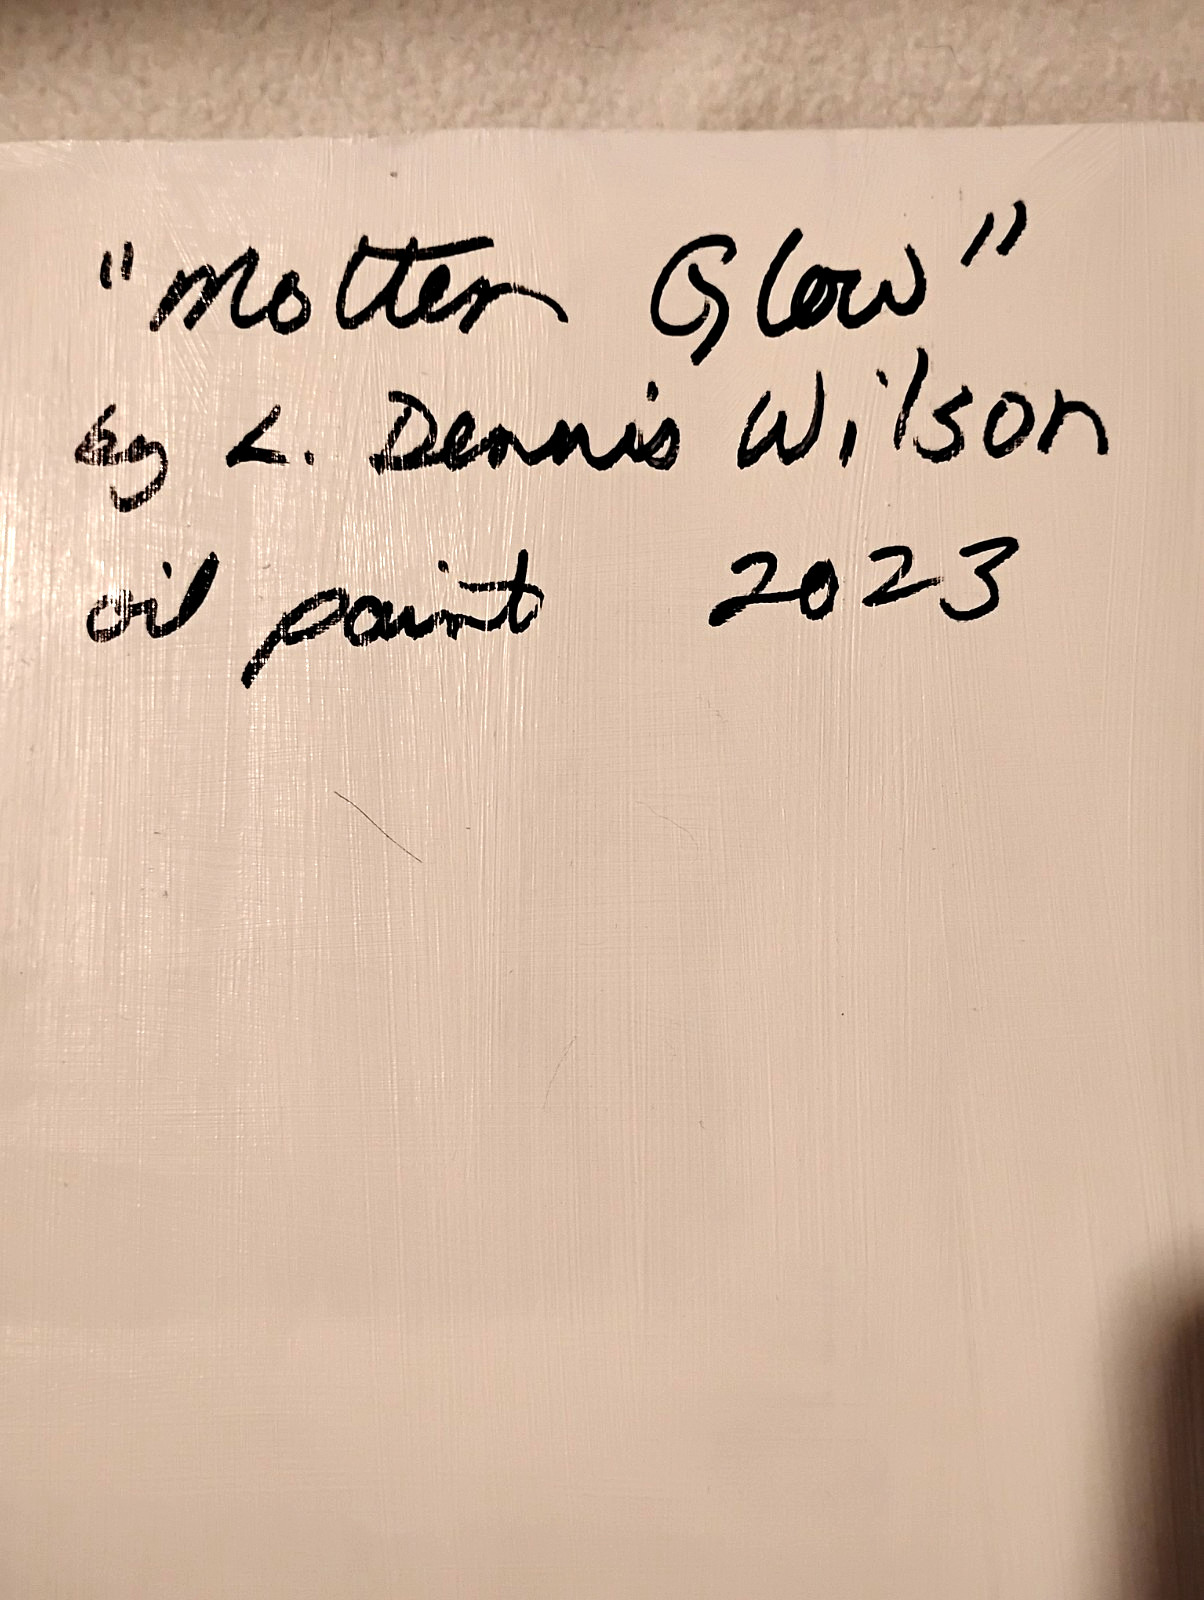 "Molten Glow"
by L. Dennis Wilson
oil paint 2023